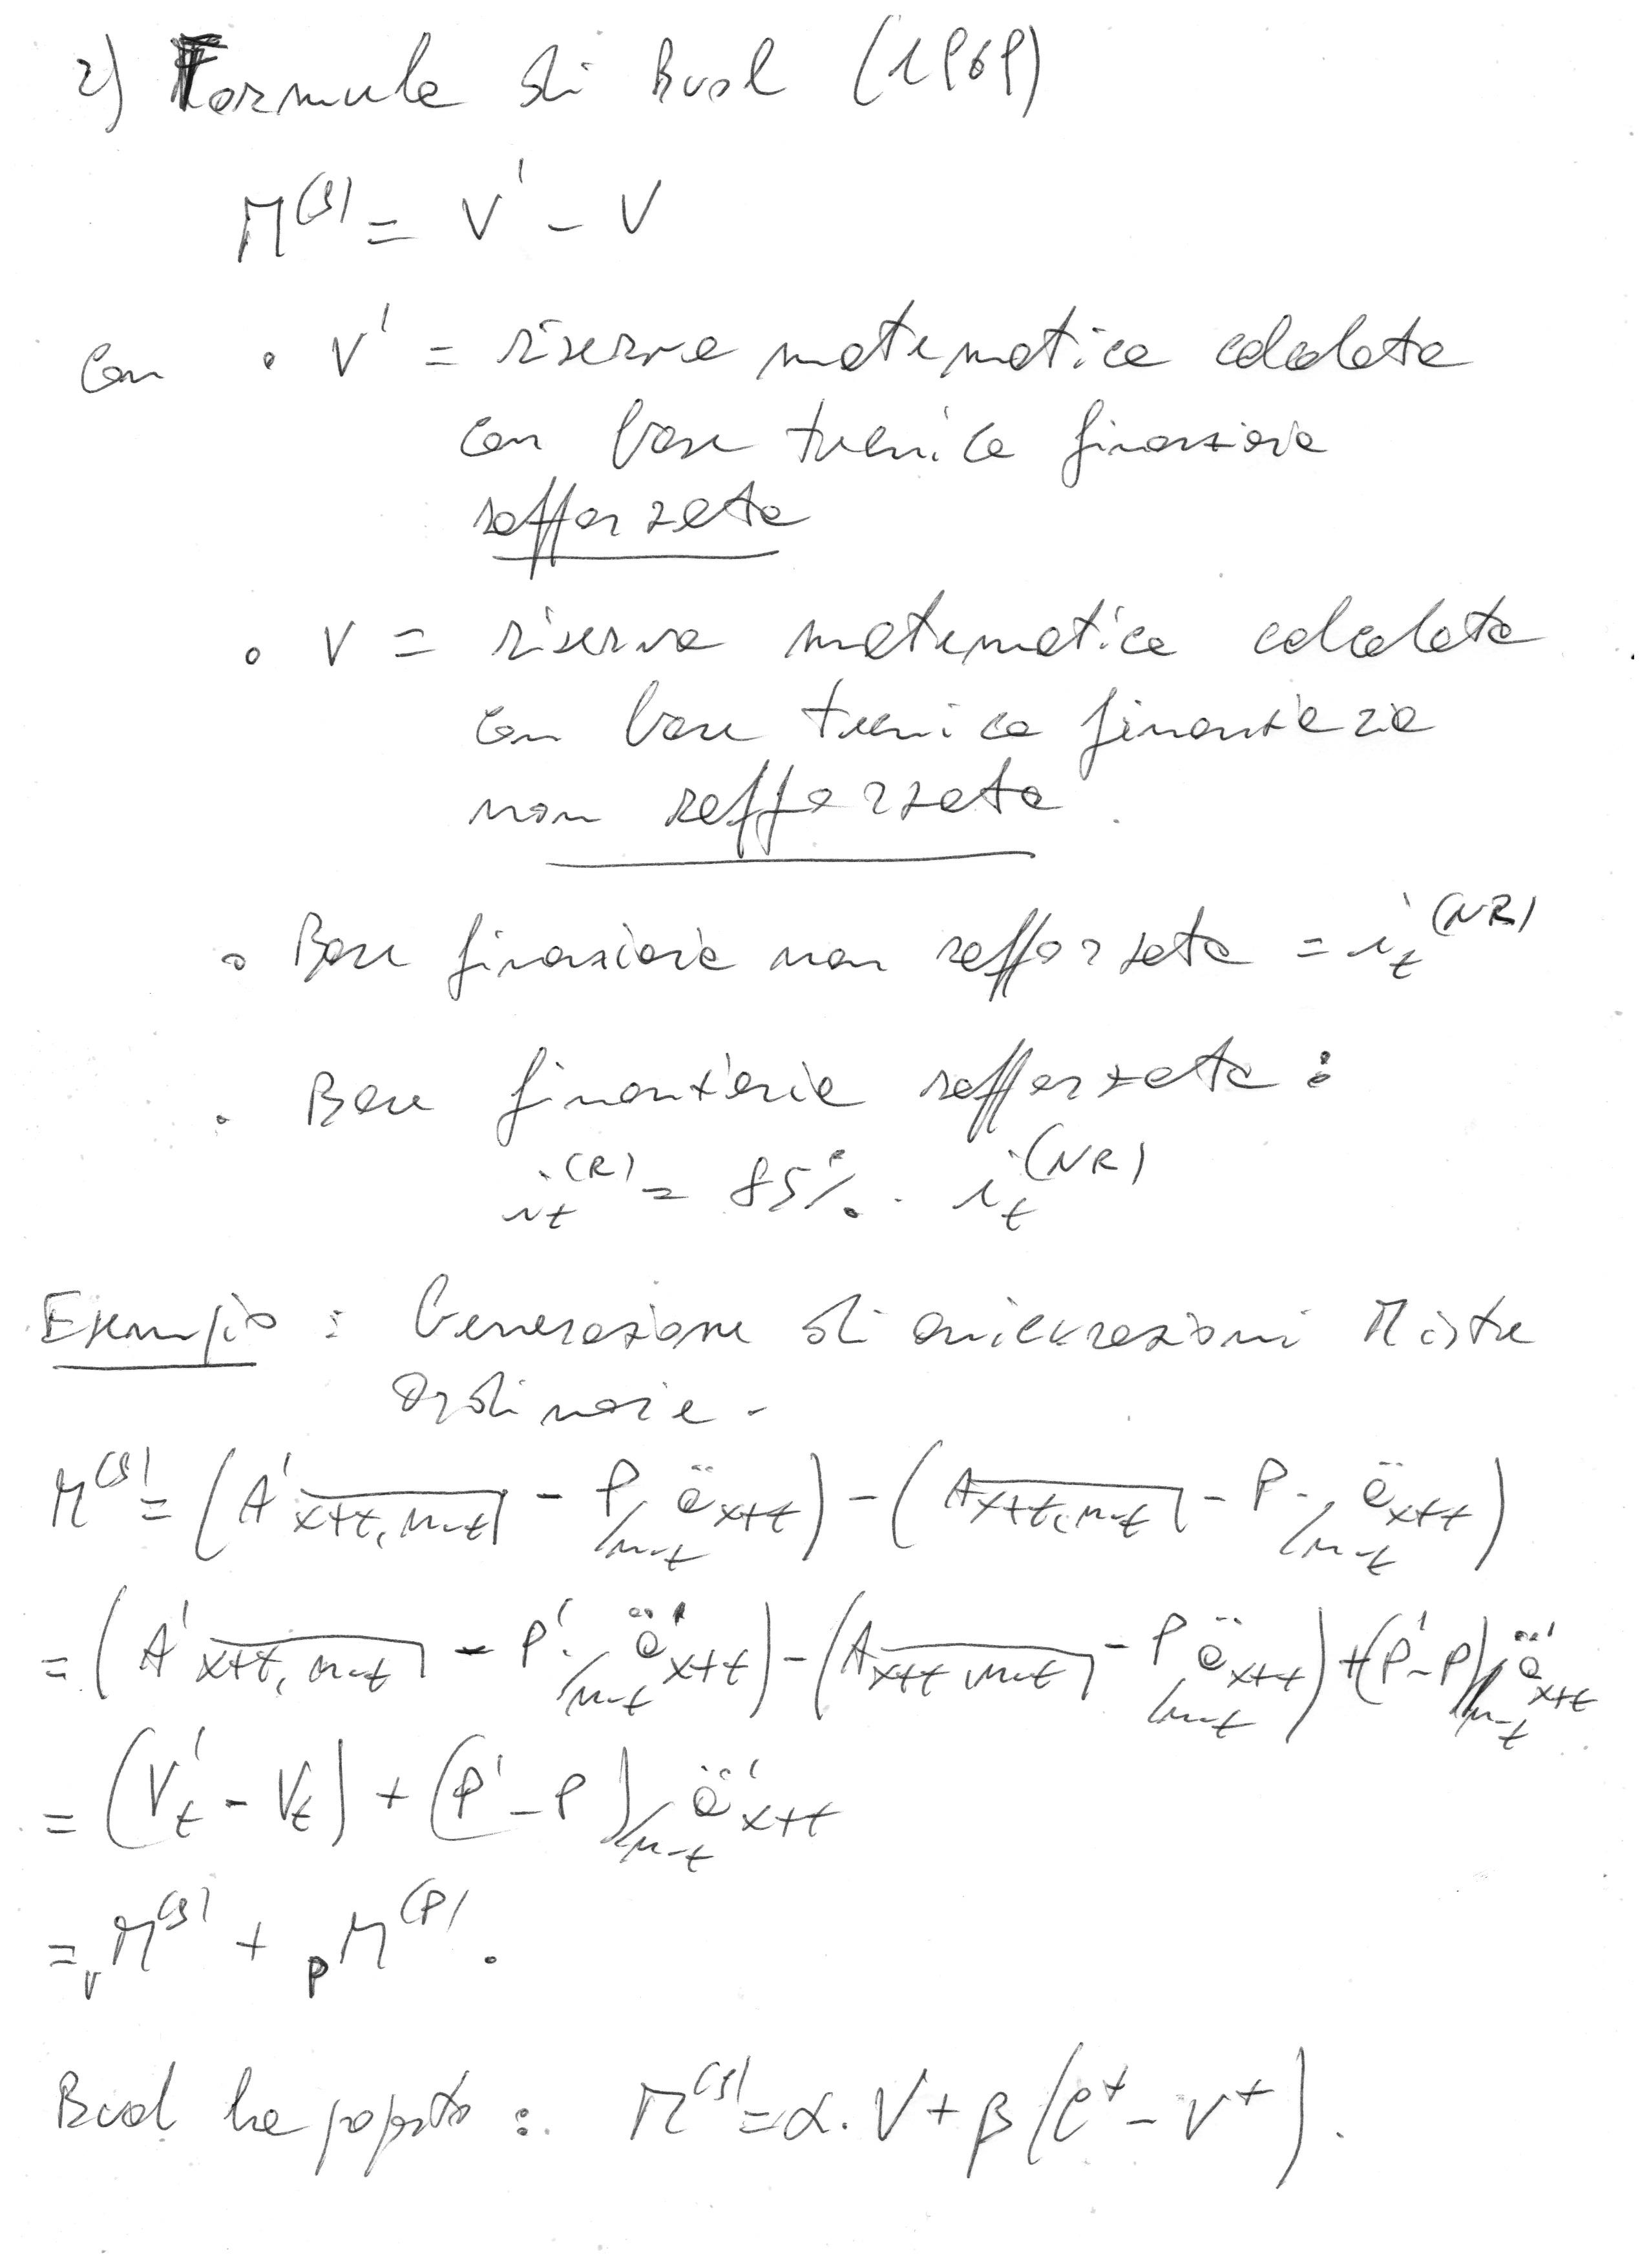 2) Formula di Buol (1969)
M^(S) = V' - V
con • V' = riserva matematica calcolata
con base tecnica finanziaria
rafforzata
• V = riserva matematica calcolata
con base tecnica finanziaria
non rafforzata.
• Base finanziaria non rafforzata = i_t^(NR)
• Base finanziaria rafforzata :
i_t^(R) = 85% · i_t^(NR)
Esempio : Generazione di assicurazioni Miste
Ordinarie -
M^(S) = (A'_{x+t, n-t⌉} - P /_{n-t} ä_{x+t}) - (A_{x+t, n-t⌉} - P · /_{n-t} ä_{x+t})
= (A'_{x+t, n-t⌉} - P' · /_{n-t} ä'_{x+t}) - (A_{x+t n-t⌉} - P /_{n-t} ä_{x+t}) + (P' - P) /_{n-t} ä'_{x+t}
= (V'_t - V_t) + (P' - P) /_{n-t} ä'_{x+t}
= _V M^(S) + _P M^(P) .
Buol ha posto : M^(S) = α · V + β (C^+ - V^+) .